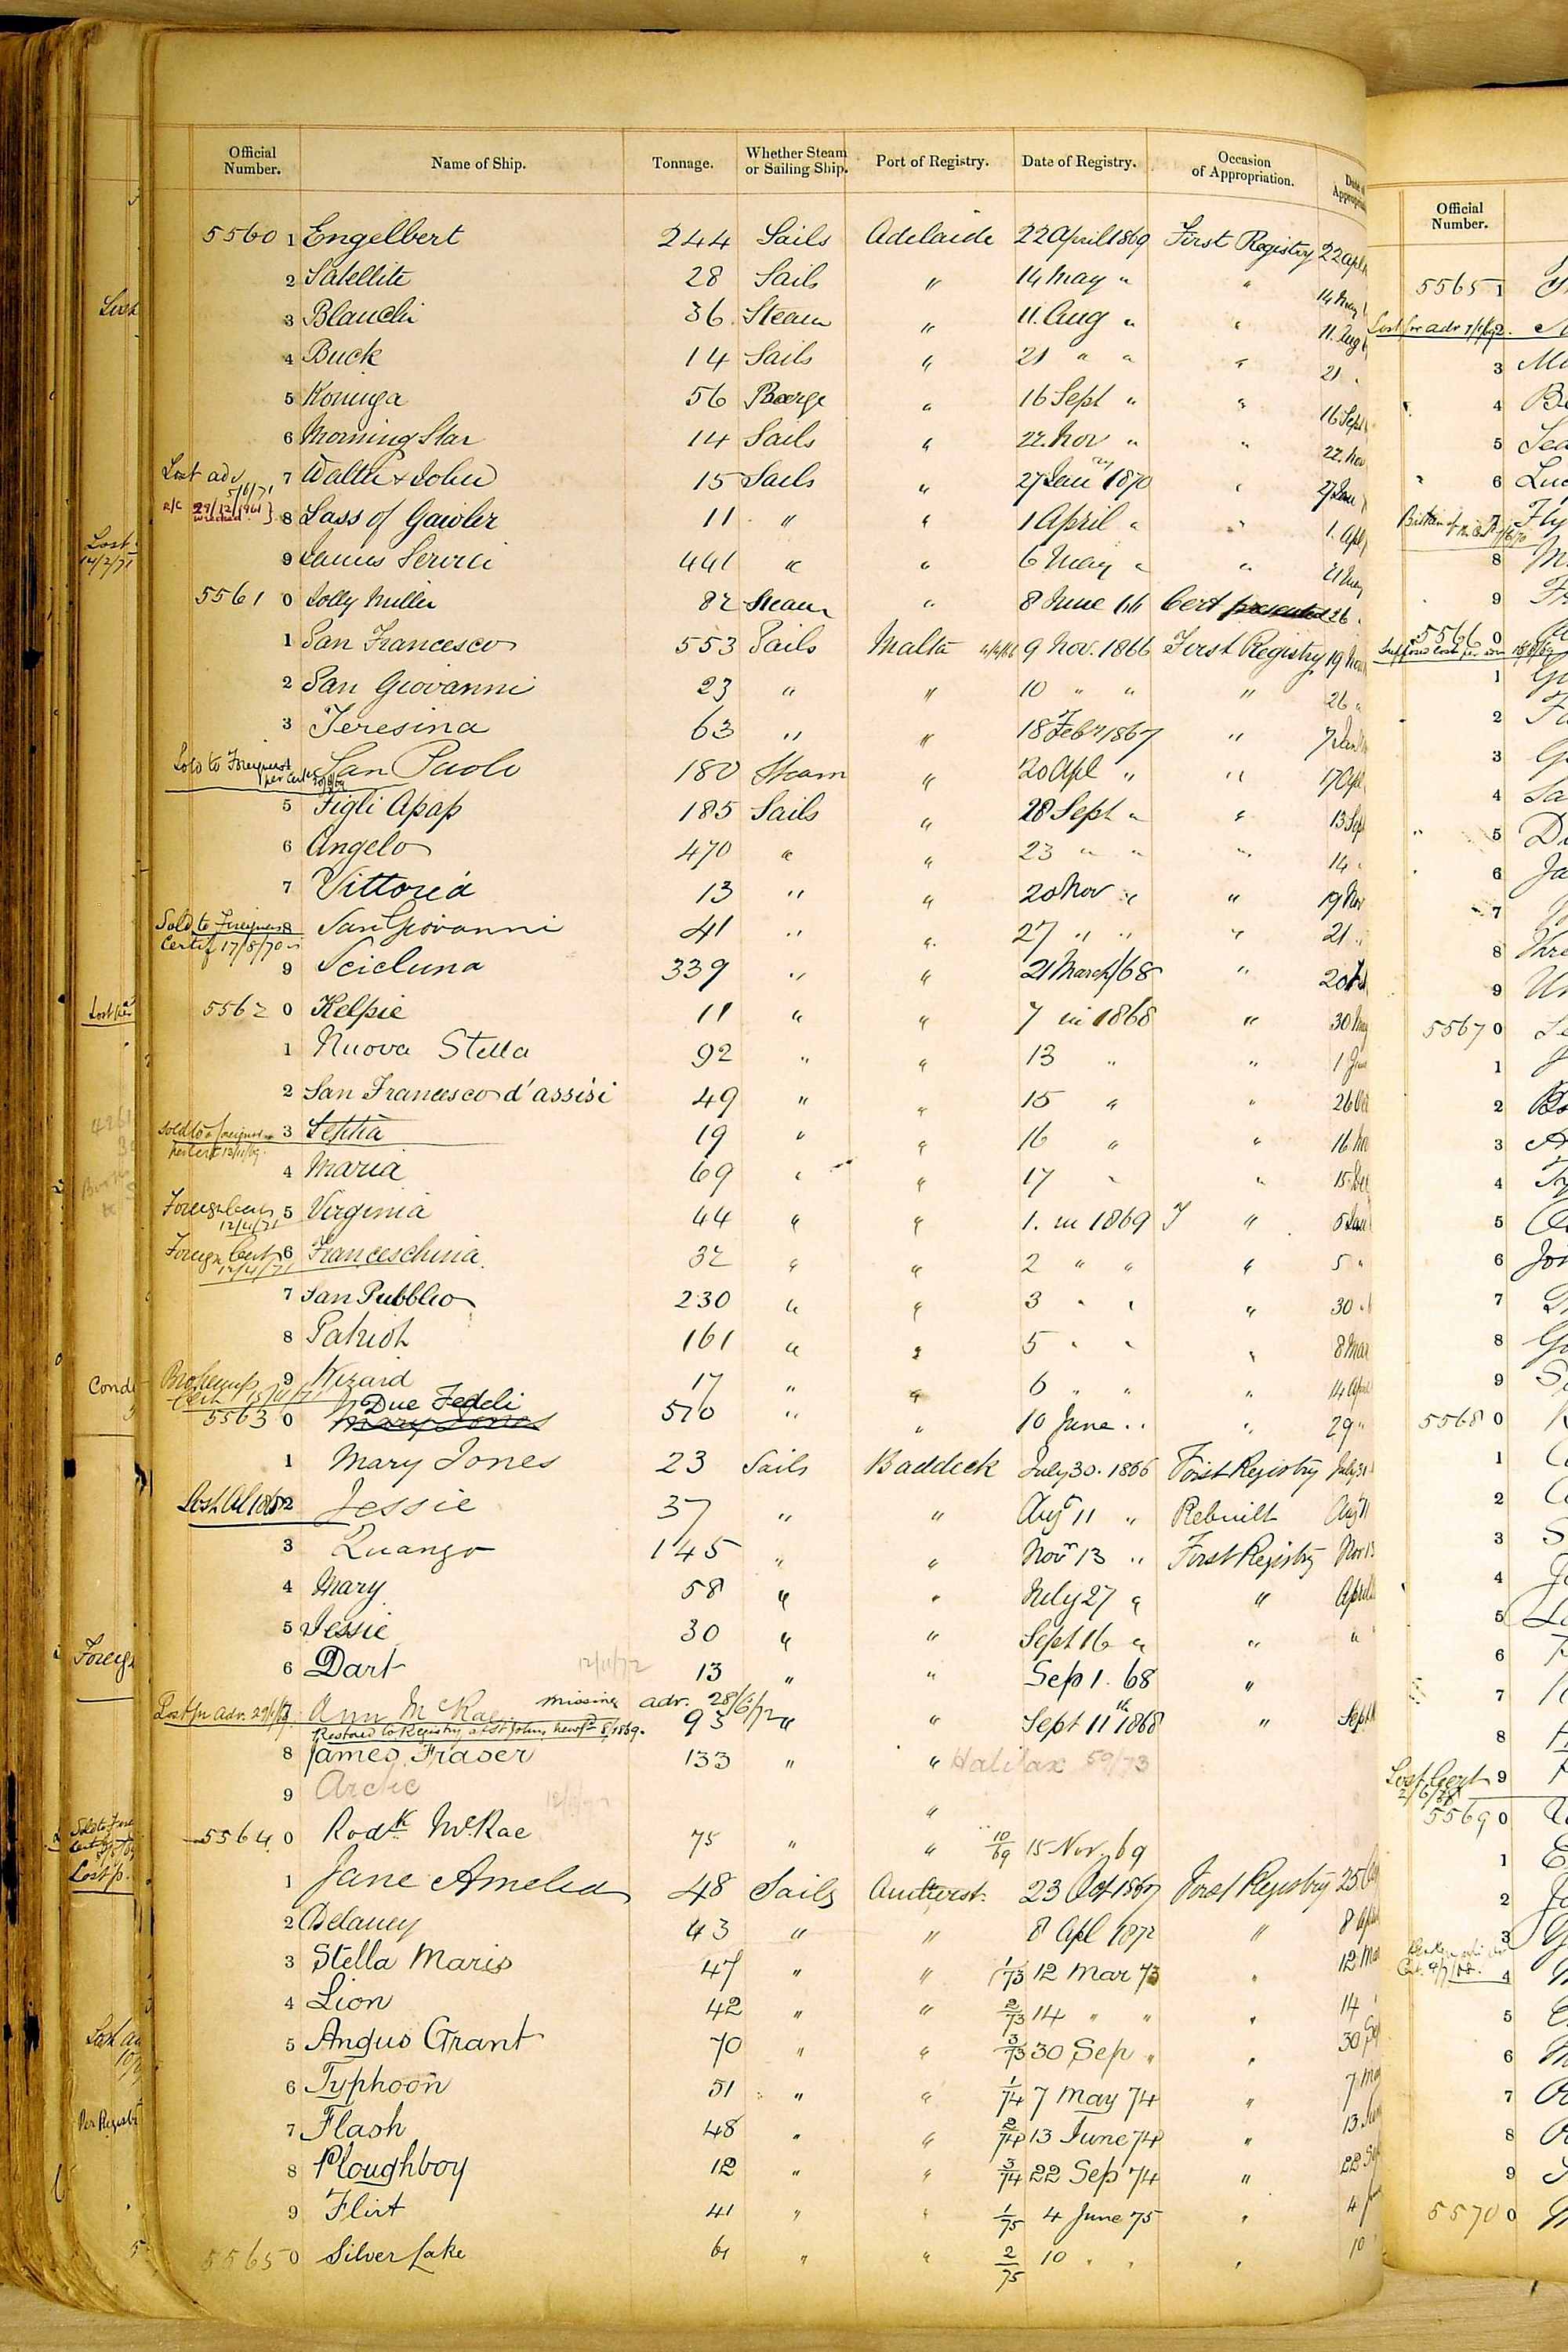 Official Number. Name of Ship. Tonnage. Whether Steam or Sailing Ship. Port of Registry. Date of Registry. Occasion of Appropriation.
5560 1 Engelbert 244 Sails Adelaide 22 April 1869 First Registry 22 Apl
2 Satellite 28 Sails " 14 May " " 14 May
3 Blanche 36 Steam " 11. Aug " " 11. Aug
4 Buck 14 Sails " 21 " " " 21 "
5 56 Barge " 16 Sept " " 16 Sept
6 Morning Star 14 Sails " 22. Nov " " 22. Nov
Lost adv 5/6/71 7 Walter & John 15 Sails " 27 Jan 1870 " 27 Jan
29/12/1961 wrecked } 8 Lass of Gawler 11 " " 1 April " " 1. Apl
9 James Service 441 " " 6 May " " 21 May
5561 0 Jolly Miller 82 Steam " 8 June 66 Cert presented 26
1 San Francesco 553 Sails Malta 9 Nov. 1866 First Registry 19 Nov
2 San Giovanni 23 " " 10 " " " 26 "
3 Teresina 63 " " 18 Feby 1867 " 7 Jan
Sold to Foreigners per Cert San Paolo 180 Steam " 20 Apl " " 17 Apl
5 Figli Apap 185 Sails " 28 Sept " " 13 Sep
6 Angelo 470 " " 23 " " " 14 "
7 Vittoria 13 " " 20 Nov " " 19 Nov
Sold to Foreigners Certif 17/8/70 8 San Giovanni 41 " " 27 " " " 21 "
9 Scicluna 339 " " 21 March/68 " 20
5562 0 Kelpie 11 " " 7 in 1868 " 30
1 Nuova Stella 92 " " 13 " " 1
2 San Francesco d'assisi 49 " " 15 " " 26
Sold to a foreigner per Cert 12/11/69 3 19 " " 16 " " 16
4 Maria 69 " " 17 " " 15
Foreign Cert 12/4/71 5 Virginia 44 " " 1. in 1869 " 5 Jan
Foreign Cert 12/4/71 6 Franceschina 32 " " 2 " " " 5 "
7 San Pubblio 230 " " 3 " " " 30 "
8 Patriot 161 " " 5 " " " 8 Mar
Broken up Cert 9 Wizard 17 " " 6 " " " 14 April
5563 0 Due Fedeli 510 " " 10 June " " 29 "
1 Mary Jones 23 Sails Baddeck July 30. 1866 First Registry July 31
2 Jessie 37 " " Augt 11 " Rebuilt Aug 11
3 Quango 145 " " Novr 13 " First Registry Nov 13
4 Mary 58 " " July 27 " " April
5 Jessie 30 " " Sept 16 " " "
6 Dart 12/11/72 13 " " Sep 1. 68 "
Lost pr adv. Ann McRae missing adv. 28/6/72 93 " " Sept 11th 1868 " Sept
Restored to Registry at St Johns Newfd 8/1869.
8 James Fraser 133 " " Halifax 59/73
9 Arctic "
5564 0 Rodk McRae 75 " " 10/69 15 Nov. 69
1 Jane Amelia 48 Sails Amherst 23 Oct 1867 First Registry 25
2 Delaney 43 " " 8 Apl 1872 " 8 Apl
3 Stella Maris 47 " " 1/73 12 Mar 73 " 12 Mar
4 Lion 42 " " 2/73 14 " " " 14
5 Angus Grant 70 " " 3/73 30 Sep " " 30 Sep
6 Typhoon 51 " " 1/74 7 May 74 " 7 May
7 Flash 48 " " 2/74 13 June 74 " 13 Jun
8 Ploughboy 12 " " 3/74 22 Sep 74 " 22 Sep
9 Flirt 41 " " 1/75 4 June 75 " 4 June
5565 0 Silver Lake 61 " " 2/75 10 " " " 10
Official Number.
5565 1
2
3
4
5
6
7
8
9
5566 0
1
2
3
4
5
6
7
8
9
5567 0
1
2
3
4
5
6
7
8
9
5568 0
1
2
3
4
5
6
7
8
Lost Cert 9
5569 0
1
2
3
4
5
6
7
8
9
5570 0